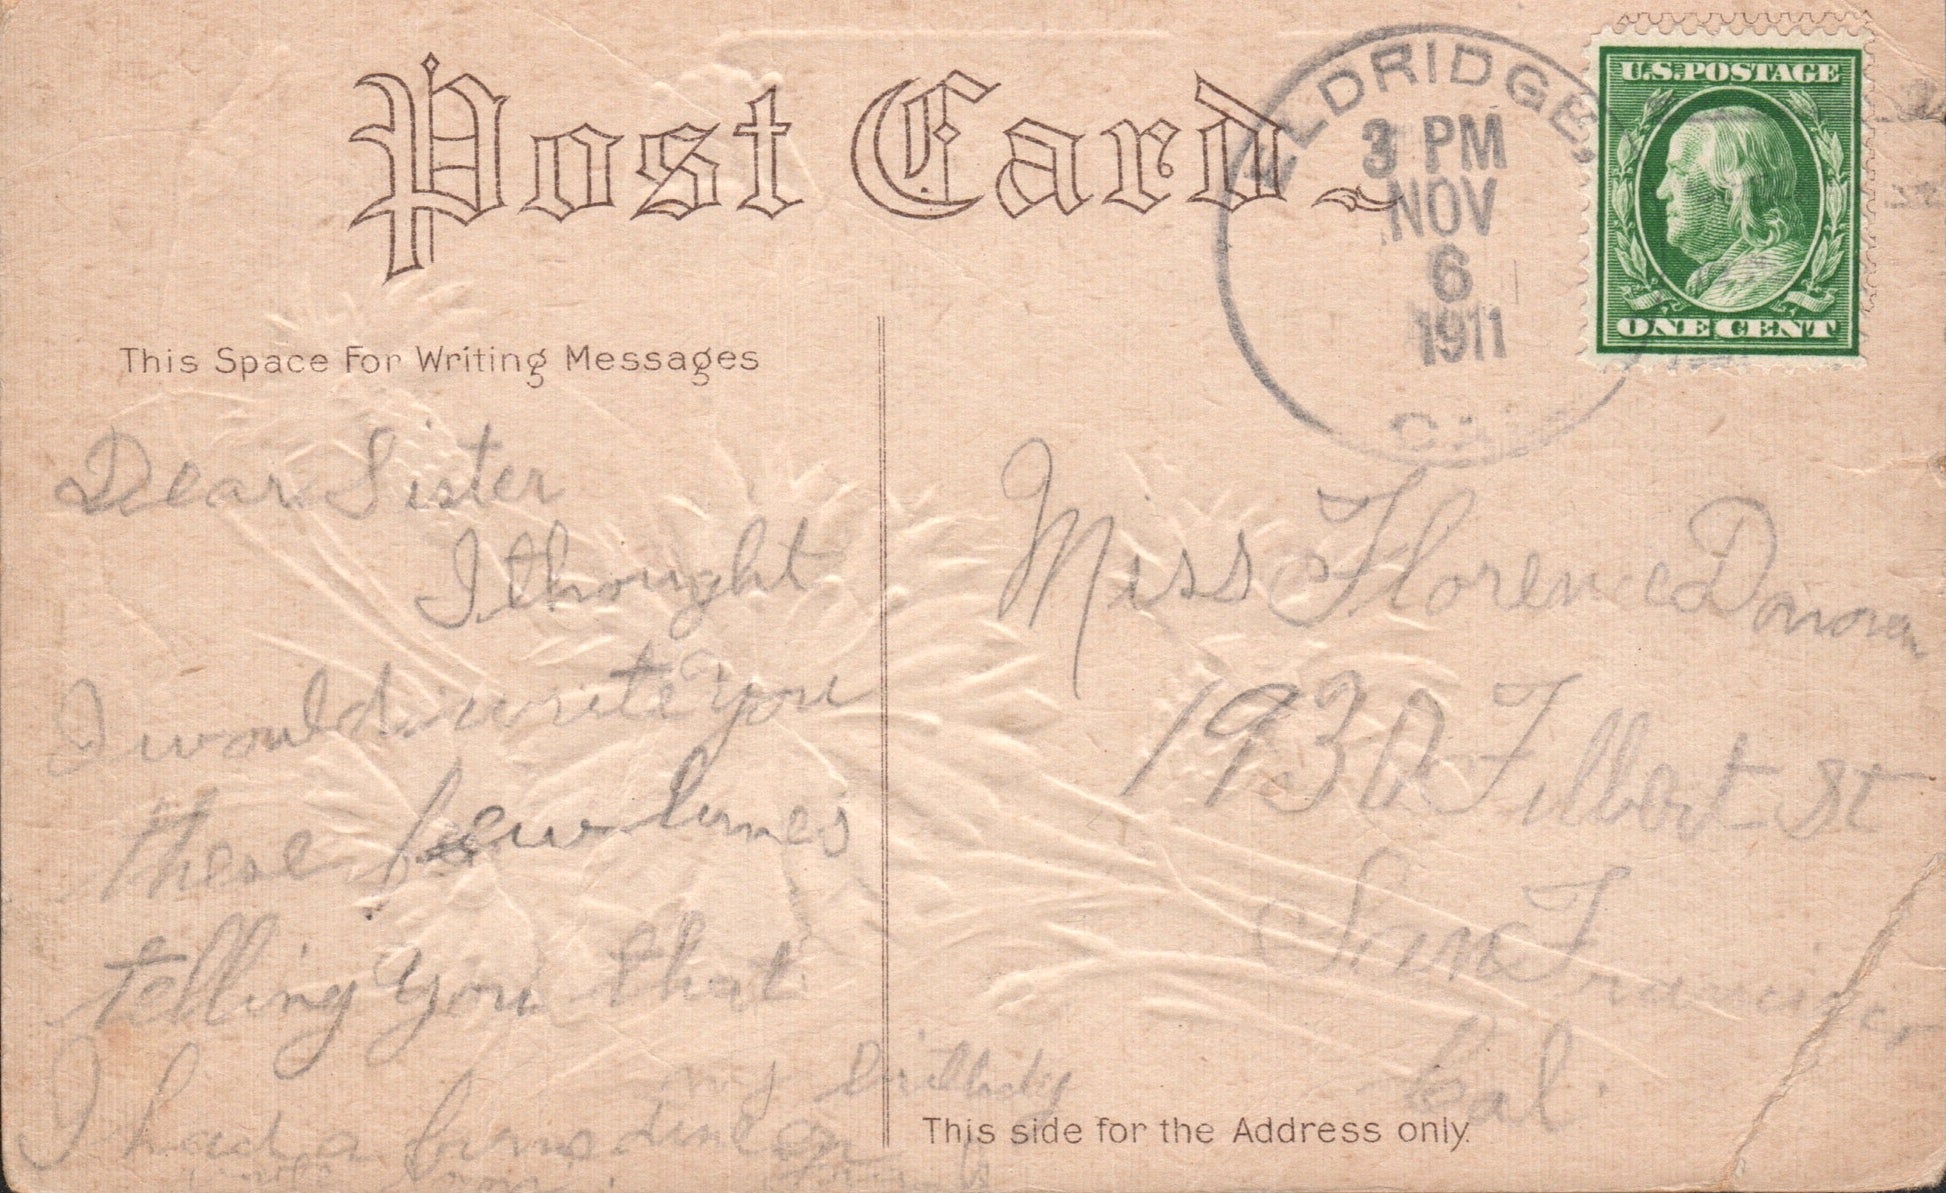 Post Card
ELDRIDGE,
3 PM
NOV
6
1911
CAL
U.S. POSTAGE
ONE CENT
This Space For Writing Messages
Dear Sister
I thought
I would write you
these few lines
telling you that
I had a fine time on
my birthday
Miss Florence Donovan
1930 Filbert St
San Francisco
Cal.
This side for the Address only.